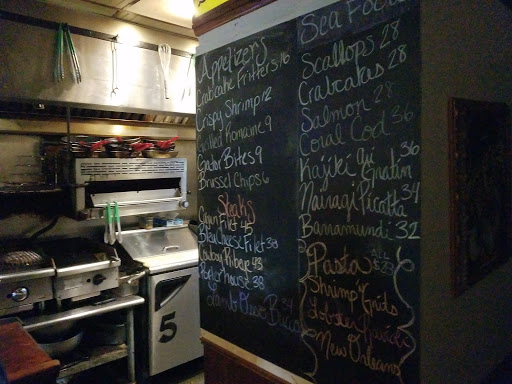 Appetizers
Crabcake Fritters 16
Crispy Shrimp 12
Grilled Romaine 9
Gator Bites 9
Brussel Chips 6
Steaks
Crown Filet 45
Bleu Cheese Filet 38
Cowboy Ribeye 43
Porter house 38
Lamb
34
Sea Food
Scallops 28
Crabcakes 28
Salmon 28
Coral Cod 36
Kajiki Au Gratin 36
Nairagi Picatta 34
Barramundi 32
Pasta
Shrimp n' Grits
Lobster
New Orleans
5